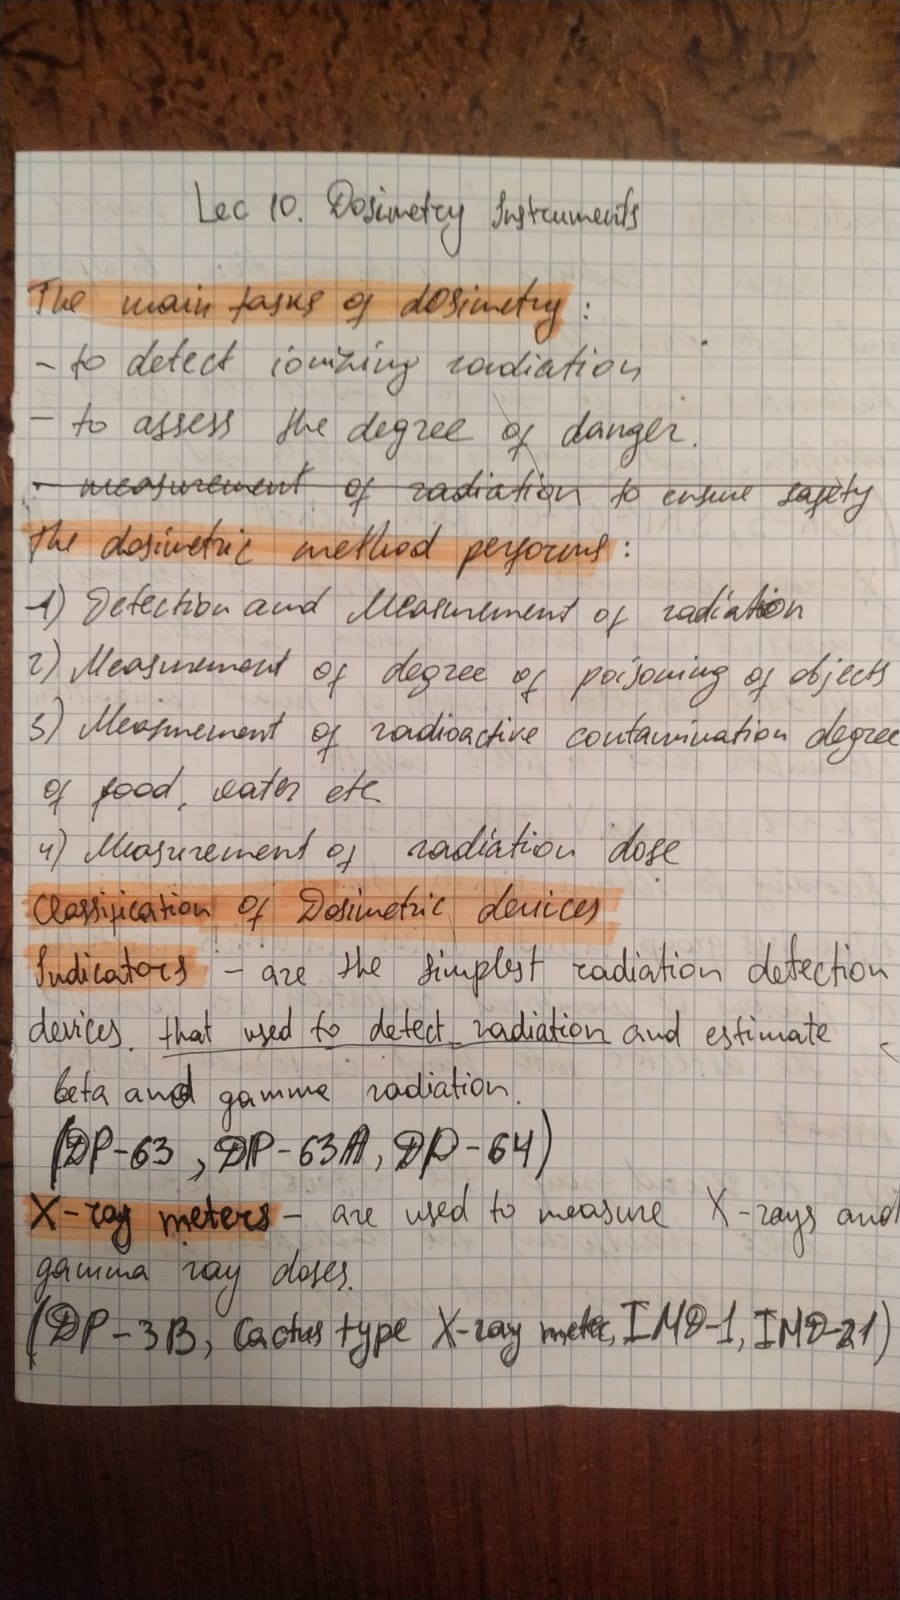 Lec 10. Dosimetry Instruments
The main tasks of dosimetry:
- to detect ionizing radiation
- to assess the degree of danger.
- measurement of radiation to ensure safety
The dosimetric method performs:
1) Detection and Measurement of radiation
2) Measurement of degree of poisoning of objects
3) Measurement of radioactive contamination degree
of food, water etc
4) Measurement of radiation dose
Classification of Dosimetric devices
Indicators - are the simplest radiation detection
devices. that used to detect radiation and estimate
beta and gamma radiation.
(DP-63, DP-63A, DP-64)
X-ray meters - are used to measure X-rays and
gamma ray doses.
(DP-3B, Cactus type X-ray meter, IMD-1, IMD-21)